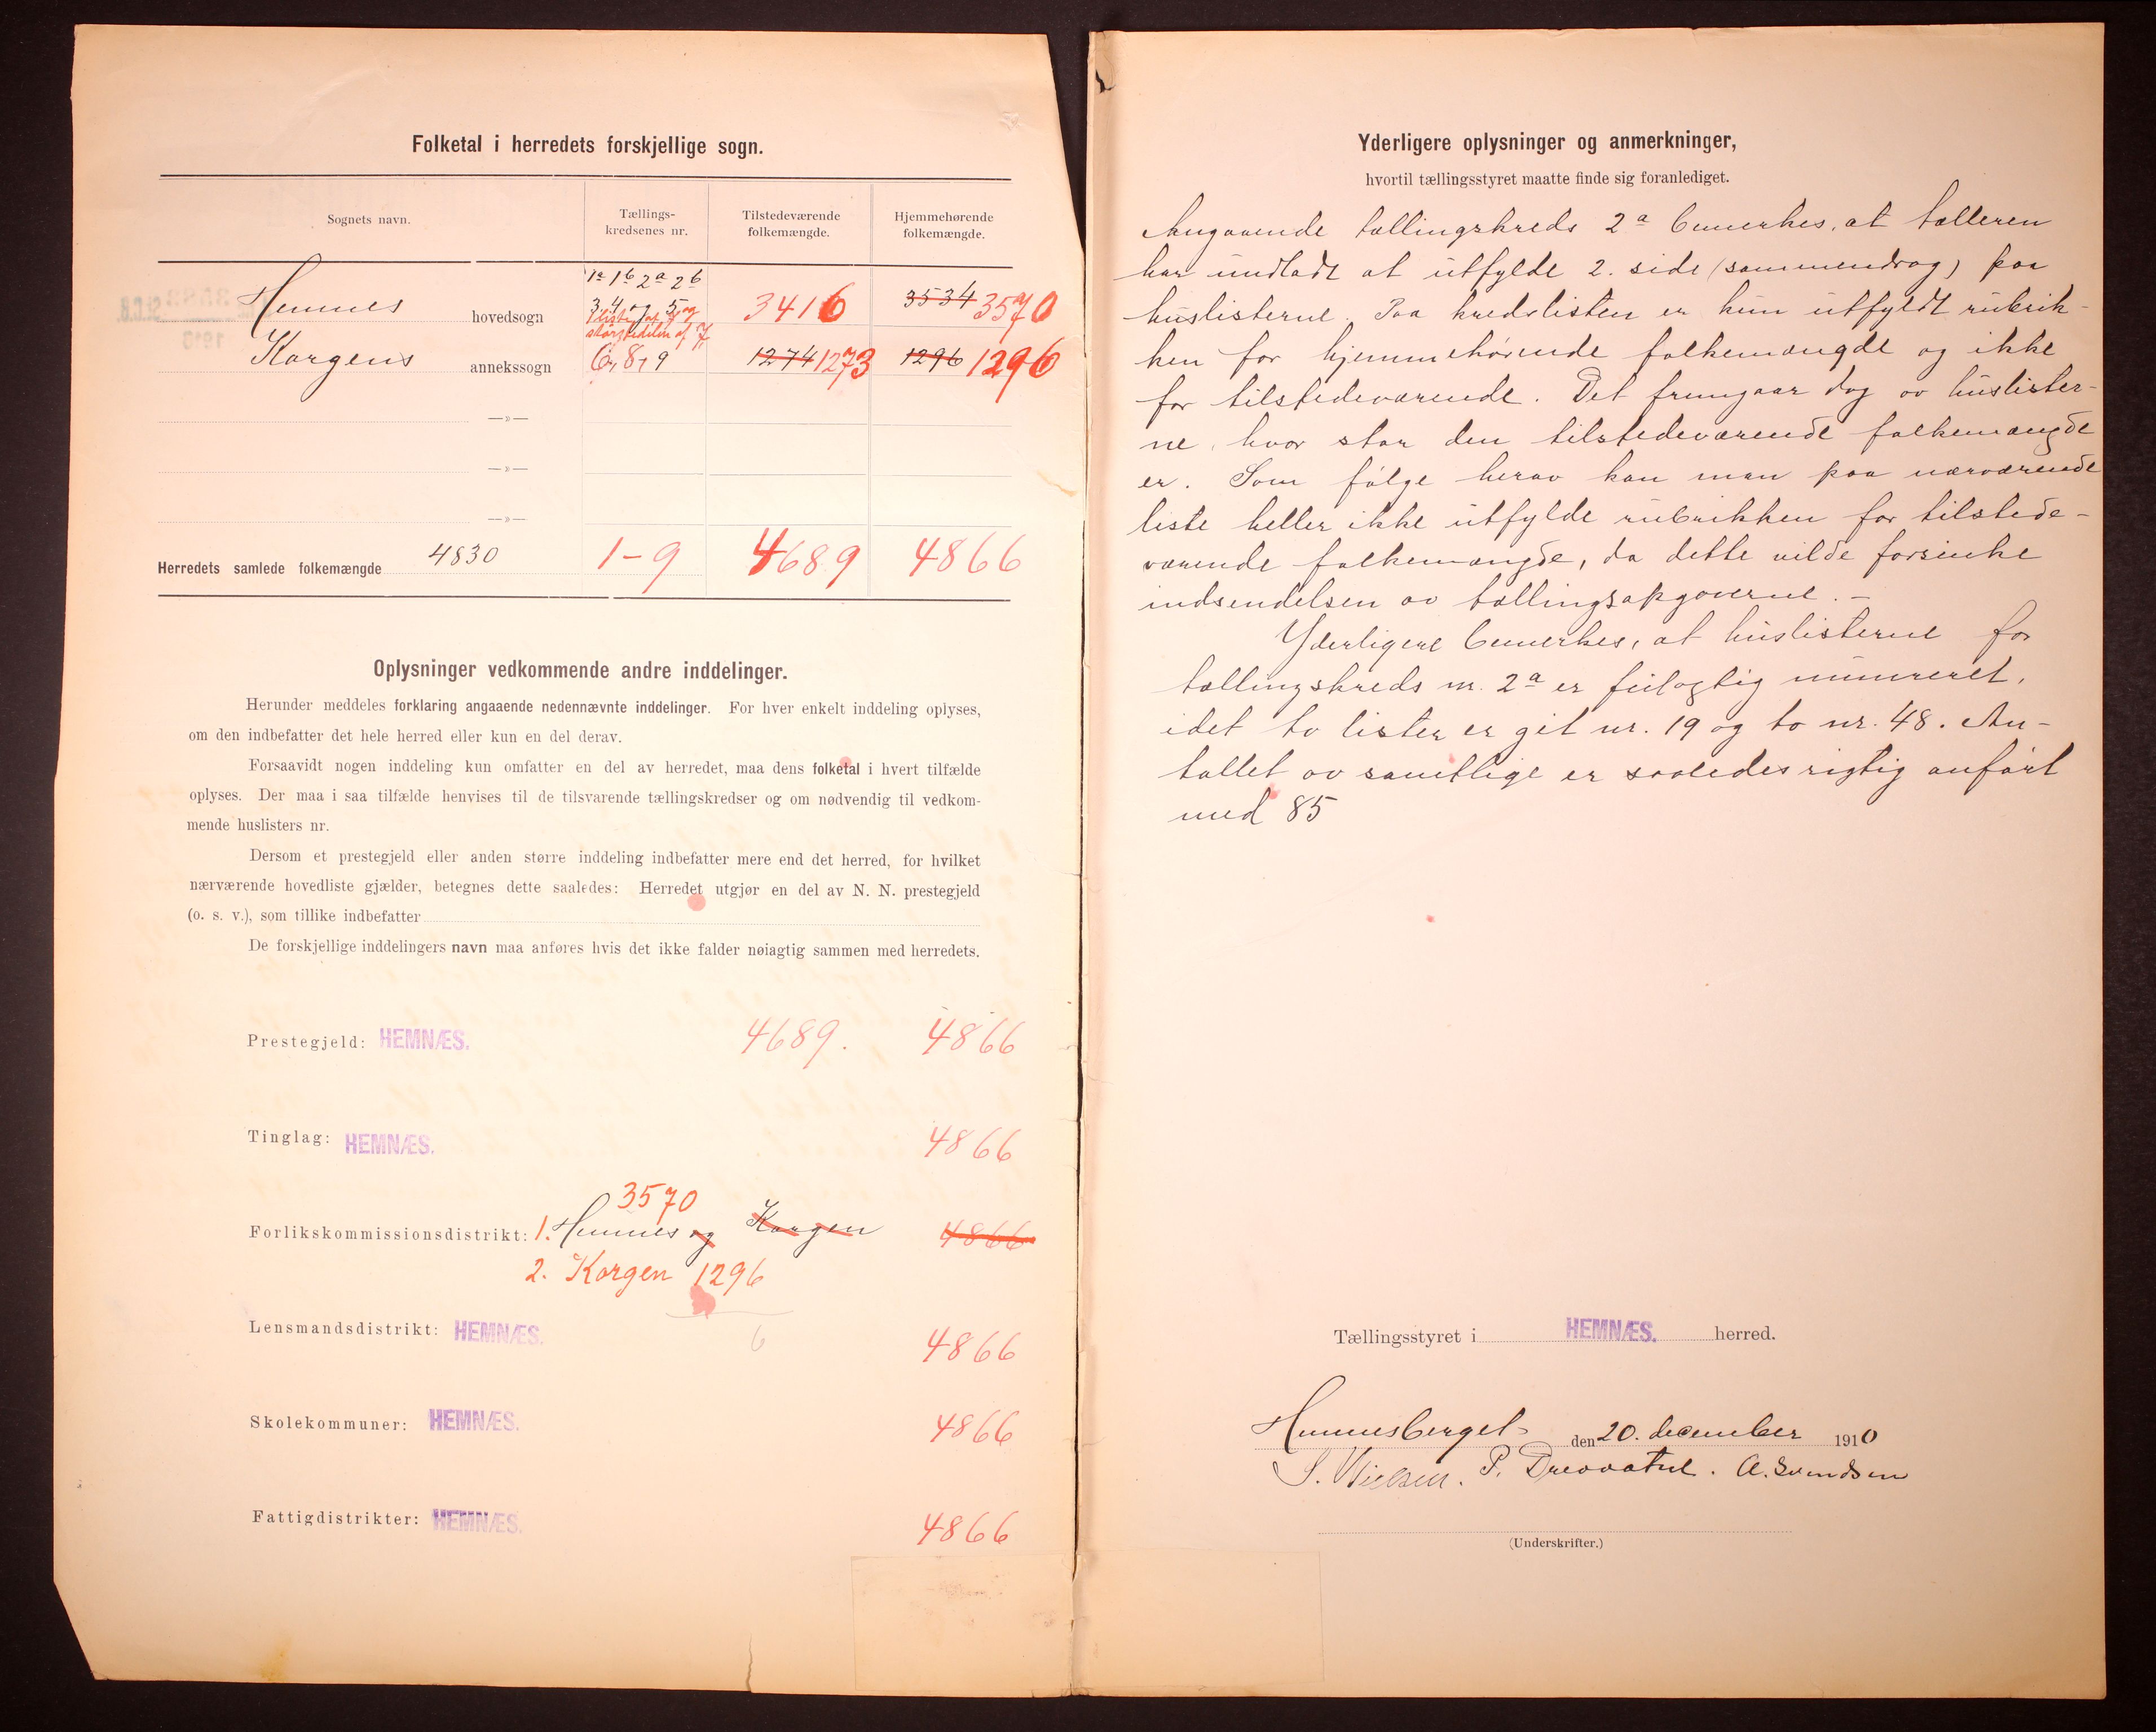 Folketal i herredets forskjellige sogn.
Sognets navn. Tællings- kredsenes nr. Tilstedeværende folkemængde. Hjemmehørende folkemængde.
1a 1b 2a 2b
Hemnes hovedsogn 3, 4 og 5 og 3416 3534 3570
Korgens annekssogn 6, 8, 9 1274 1273 1296 1296
—»—
—»—
—»—
Herredets samlede folkemængde 4830 1-9 4689 4866
Oplysninger vedkommende andre inddelinger.
Herunder meddeles forklaring angaaende nedennævnte inddelinger. For hver enkelt inddeling oplyses,
om den indbefatter det hele herred eller kun en del derav.
Forsaavidt nogen inddeling kun omfatter en del av herredet, maa dens folketal i hvert tilfælde
oplyses. Der maa i saa tilfælde henvises til de tilsvarende tællingskredser og om nødvendig til vedkom-
mende huslisters nr.
Dersom et prestegjeld eller anden større inddeling indbefatter mere end det herred, for hvilket
nærværende hovedliste gjælder, betegnes dette saaledes: Herredet utgjør en del av N. N. prestegjeld
(o. s. v.), som tillike indbefatter
De forskjellige inddelingers navn maa anføres hvis det ikke falder nøiagtig sammen med herredets.
Prestegjeld: HEMNÆS. 4689. 4866
Tinglag: HEMNÆS. 4866
3570
Forlikskommissionsdistrikt: 1. Hemnes og Korgen 4866
2. Korgen 1296
Lensmandsdistrikt: HEMNÆS. 6 4866
Skolekommuner: HEMNÆS. 4866
Fattigdistrikter: HEMNÆS. 4866
Yderligere oplysninger og anmerkninger,
hvortil tællingsstyret maatte finde sig foranlediget.
Angaaende tællingskreds 2a bemerkes, at tælleren
har undladt at utfylde 2. side (sammendrag) paa
huslisterne. Paa kredslisten er kun utfyldt rubrik-
ken for hjemmehørende folkemængde og ikke
for tilstedeværende. Det fremgaar dog av huslister-
ne, hvor stor den tilstedeværende folkemængde
er. Som følge herav kan man paa nærværende
liste heller ikke utfylde rubrikken for tilstede-
værende folkemængde, da dette vilde forsinke
indsendelsen av tællingsopgaverne. —
Yderligere bemerkes, at huslisterne for
tællingskreds nr. 2a er feilagtig numreret,
idet to lister er git nr. 19 og to nr. 48. An-
tallet av samtlige er saaledes rigtig anført
med 85
Tællingsstyret i HEMNÆS. herred.
Hemnesberget den 20. december 1910
S. Nielsen. P. Drevvatne. A. Svendsen
(Underskrifter.)